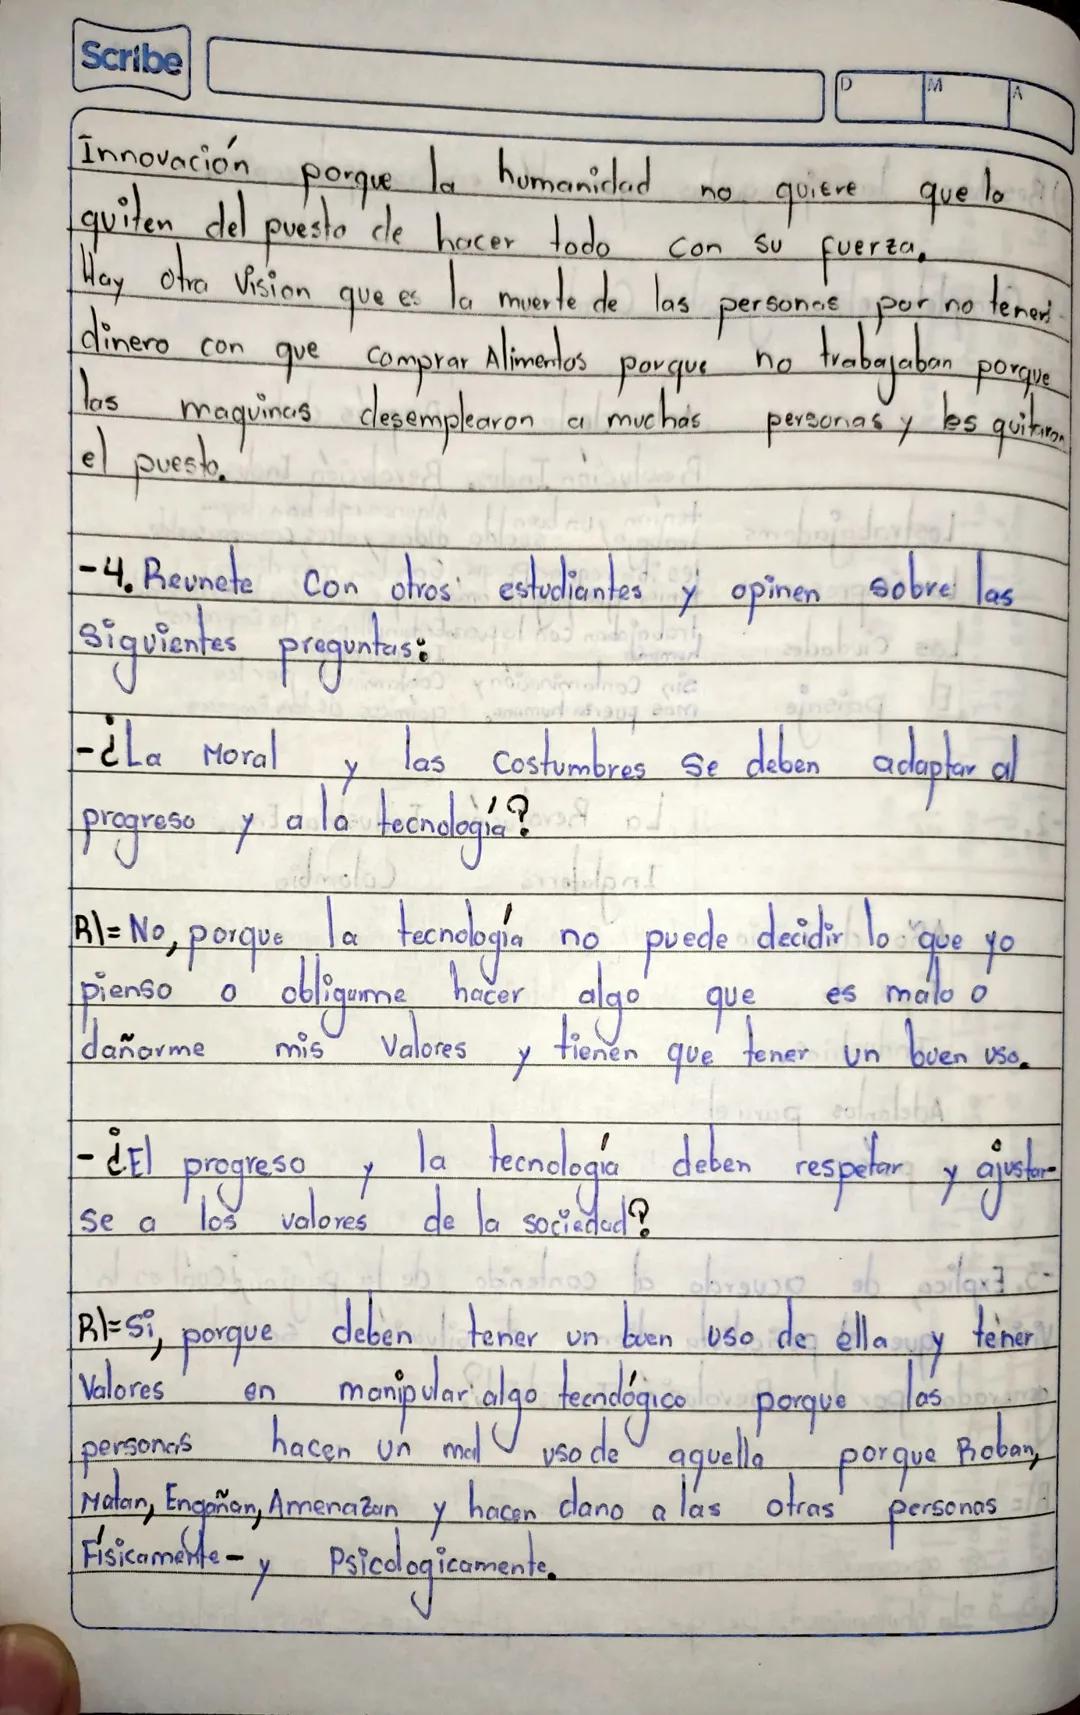 Scribe
D M A
Innovación porque la humanidad no quiere que lo
quiten del puesto de hacer todo con su fuerza.
Hay otra Vision que es la muerte de las personas por no tener
dinero con que comprar Alimentos porque no trabajaban porque
las maquinas desemplearon a muchas personas y les quitaron
el puesto.
-4. Reunete con otros estudiantes y opinen sobre las
siguientes preguntas:
-¿La Moral y las costumbres se deben adaptar al
progreso y a la tecnología?
R|= No, porque la tecnología no puede decidir lo que yo
pienso o obligarme hacer algo que es malo o
dañarme mis Valores y tienen que tener un buen uso.
-¿El progreso y la tecnología deben respetar y ajustar-
se a los valores de la sociedad?
R|= Si, porque deben tener un buen uso de ella y tener
Valores en manipular algo tecnológico porque las
personas hacen un mal uso de aquello porque Roban,
Matan, Engañan, Amenazan y hacen dano a las otras personas
Físicamente - y Psicologicamente.